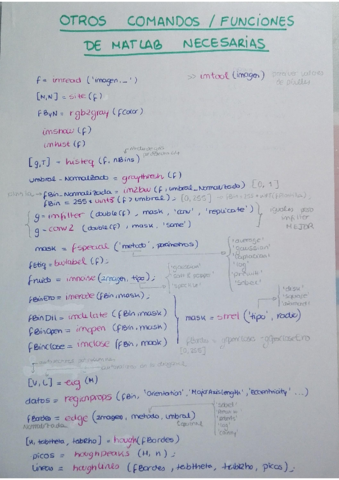 OTROS COMANDOS / FUNCIONES
DE MATLAB NECESARIAS
f = imread ('imagen...')
imtool (imagen)
[M,N] = size (f)
fByN = rgb2gray (fColor)
imshow (f)
imhist (f)
[g,T] = histeq (f, nBins)
umbral-Normalizado = graythresh (f)
fBin-Normalizada = im2bw (f, umbral-Normalizado) [0,1]
fBin = 255 * uint8 (f > umbral); [0,255]
g = imfilter (double(f), mask, 'conv', 'replicate')
g = conv2 (double(f), mask, 'same')
imfilter
MEJOR
mask = fspecial ('metodo', parametros)
"average"
"gaussian"
"laplacian"
"log"
"prewitt"
"sobel"
fEtiq = bwlabel (f);
fruido = imnoise (imagen, tipo);
"gaussian"
fBinEro = imerode (fBin, mask);
fBinDil = imdilate (fBin, mask)
fBinOpen = imopen (fBin, mask)
fBinClose = imclose (fBin, mask)
mask = strel ('tipo', radio)
"disk"
"square"
[0,255]
[V, L] = eig (M)
datos = regionprops (fBin, 'Orientation', 'MajorAxisLength', 'Eccentricity' ...)
fBordes = edge (imagen, metodo, umbral)
"sobel"
"log"
"canny"
[H, tabtheta, tabRho] = hough (fBordes)
picos = houghpeaks (H, n);
lineas = houghlines (fBordes, tabtheta, tabRho, picos);